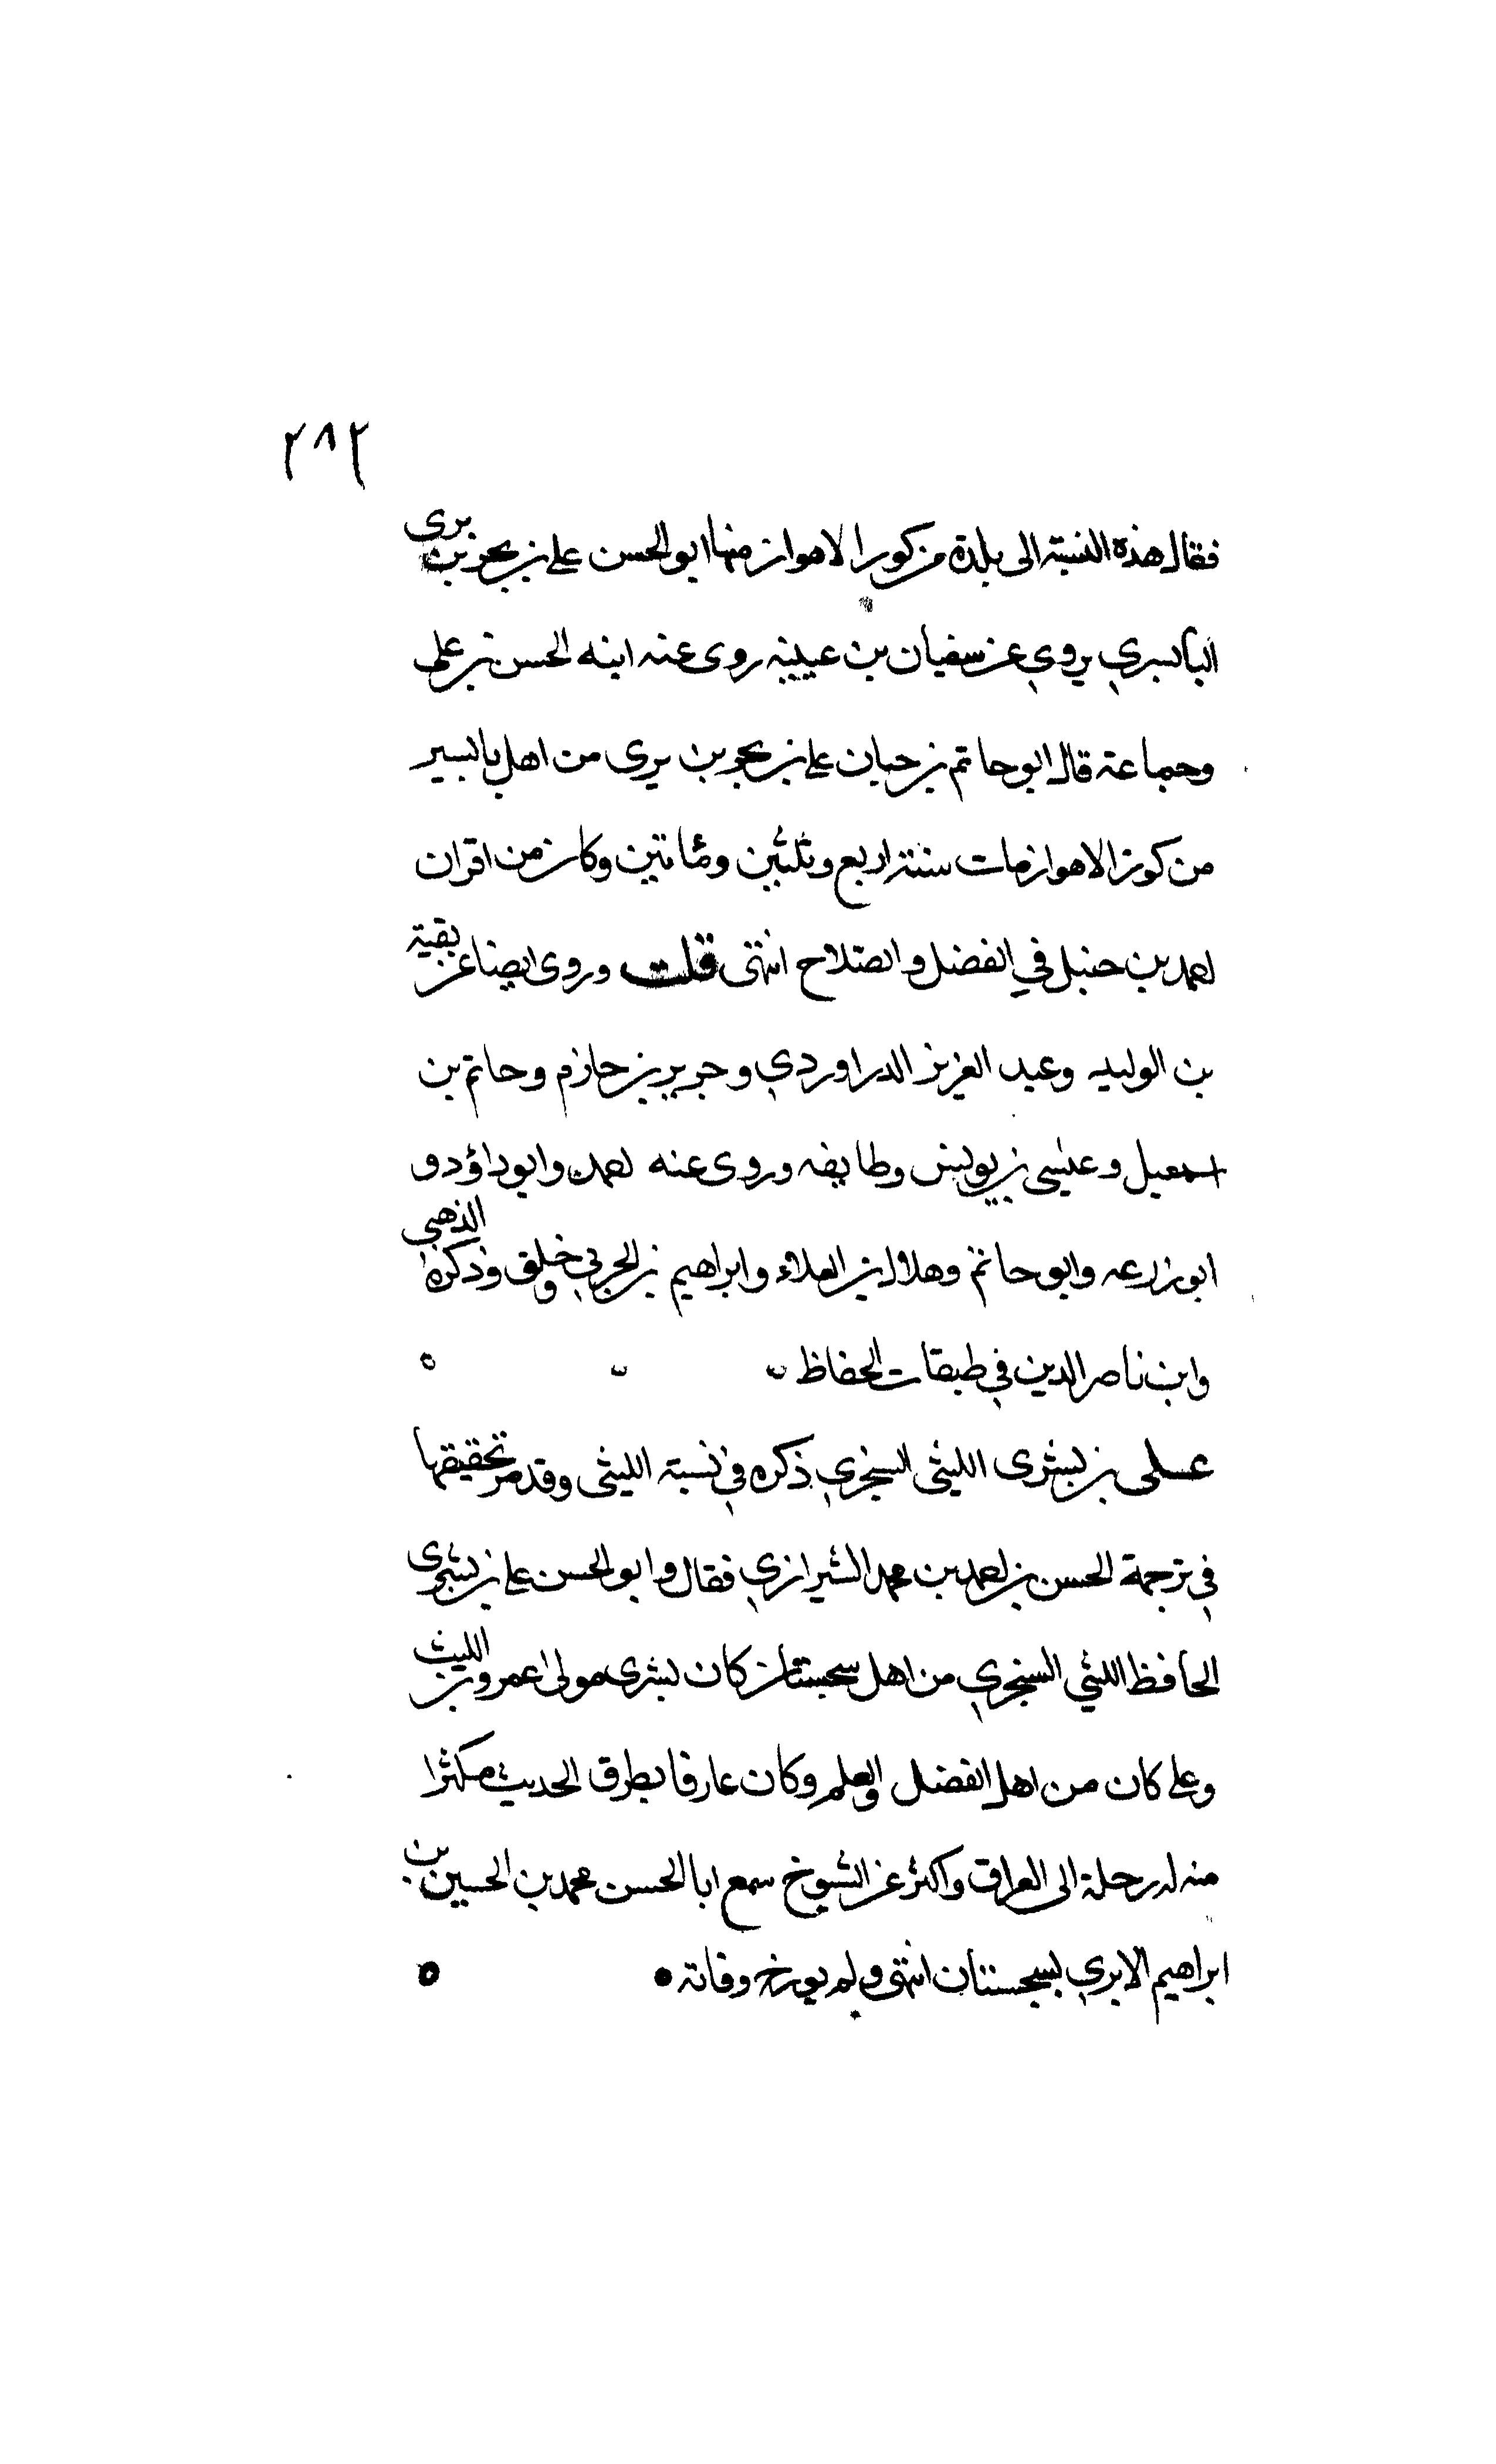 ٢٨٢
فقال هذه النسبة الى بلدة من كور الاهواز منها ابو الحسن على بن بحر بن برى
البابسيرى يروي عن سفيان بن عيينة روى عنه ابنه الحسن بن على
وجماعة قال ابو حاتم بن حبان على بن بحر بن برى من اهل بابسير
من كور الاهواز مات سنة اربع وثلثين ومائتين وكان من اقران
احمد بن حنبل في الفضل والصلاح انتهى قلت وروى ايضا عن بقية
بن الوليد وعبد العزيز الدراوردي وجرير بن حازم وحاتم بن
اسمعيل وعيسى بن يونس وطايفه وروى عنه احمد وابو داؤد و
ابو زرعه وابو حاتم وهلال بن العلاء وابراهيم بن الحربي وخلق وذكره الذهبى
وابن ناصر الدين في طبقات الحفاظ
على بن بشرى الليثى السجزي ذكره في نسبة الليثى وقد مر تحقيقها
في ترجمة الحسن بن احمد بن محمد الشيرازي فقال وابو الحسن على بن بشرى
الحافظ الليثي السنجري من اهل سجستان كان بشرى مولى عمرو بن الليث
وعلى كان من اهل الفضل والعلم وكان عارفا بطرق الحديث مكثرا
منه له رحلة الى العراق واكثر عن الشيوخ سمع ابا الحسن محمد بن الحسين بن
ابراهيم الابري بسجستان انتهى ولم يورخ وفاته